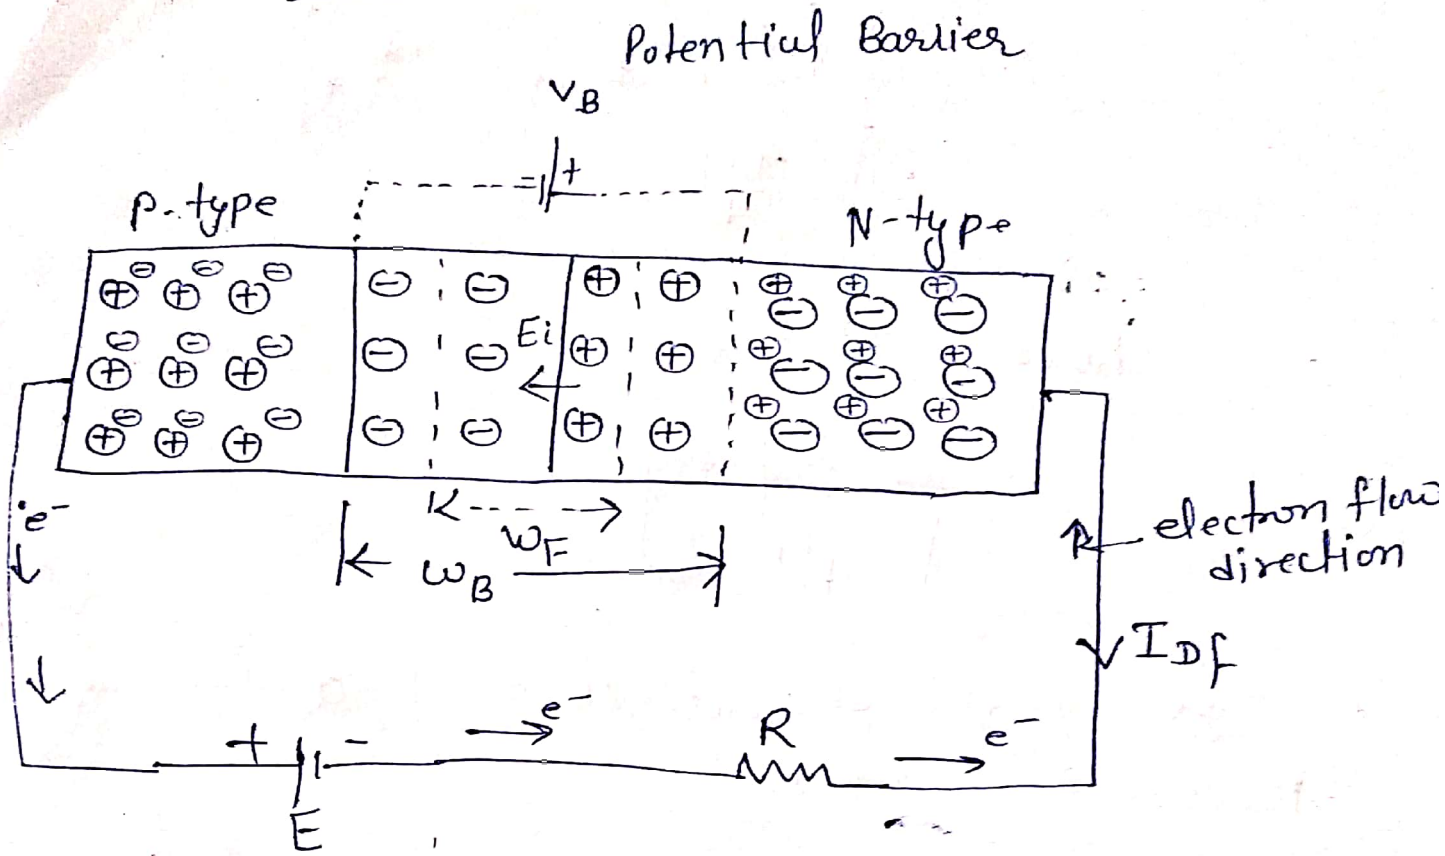 Potential Barrier
VB
= +
P-type
N-type
Ei
WF
WB
e-
electron flow
direction
IDf
+ -
e-
R
e-
E